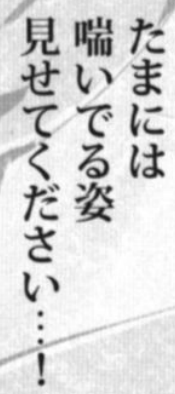 たまには
喘いでる姿
見せてください…！